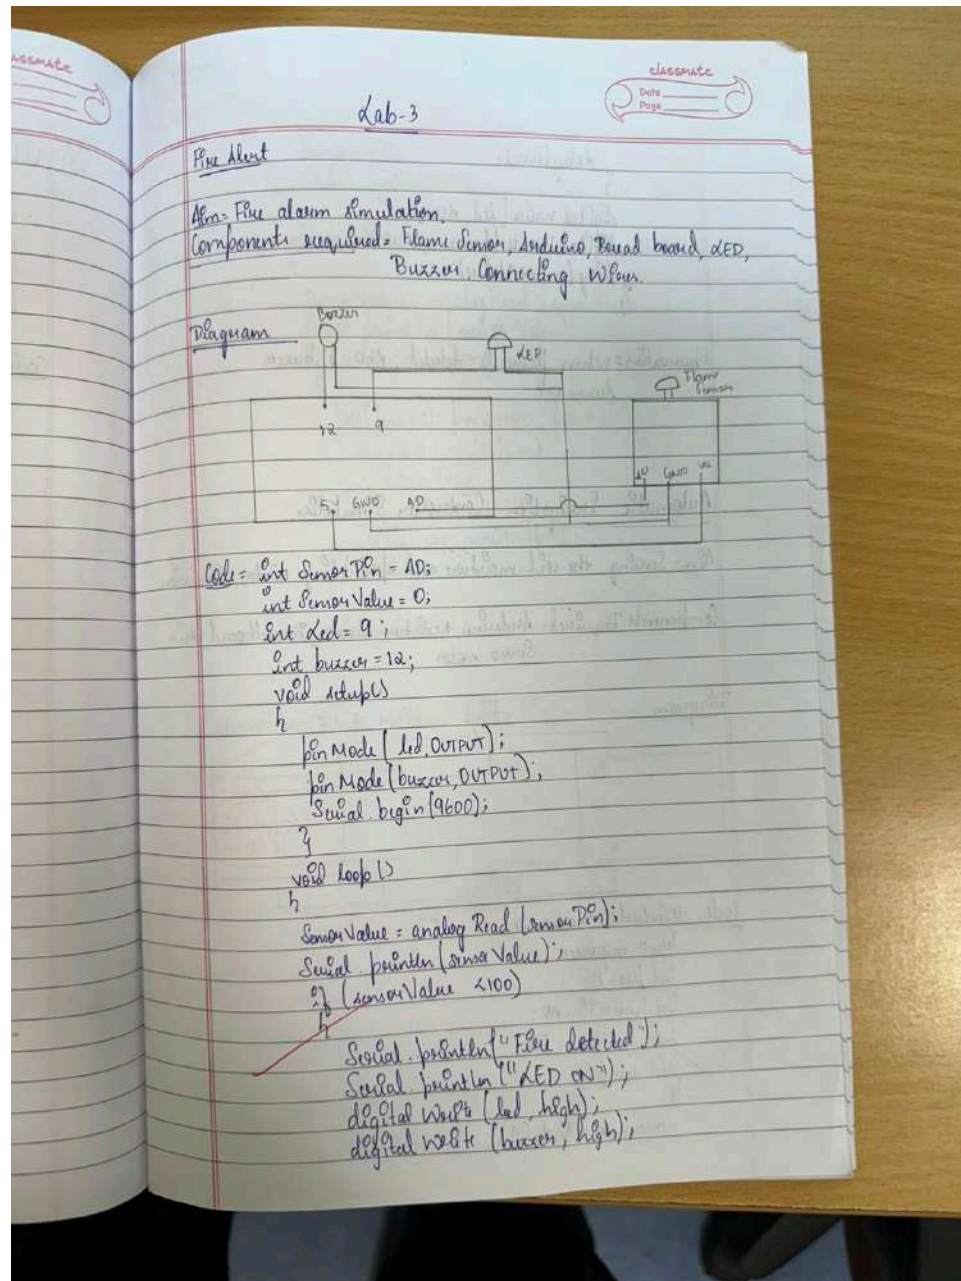 assmate
classmate
Date
Page
Lab-3
Fire Alert
Aim = Fire alarm simulation.
Components required = Flame Sensor, Arduino, Bread board, LED,
Buzzer, Connecting Wires.
Diagram
Buzzer
LED
Flame
Sensor
12 9
A0 GND Vcc
5 GND A0
Code = int Sensor Pin = A0;
int Sensor Value = 0;
int Led = 9;
int buzzer = 12;
void setup()
{
pin Mode ( led, OUTPUT );
pin Mode (buzzer, OUTPUT);
Serial. begin (9600);
}
void loop ()
{
Sensor Value = analog Read (sensor Pin);
Serial. println (sensor Value);
if (sensor Value <100)
{
Serial. println ("Fire detected");
Serial println ("LED ON");
digital Write (led, high);
digital write (buzzer, high);